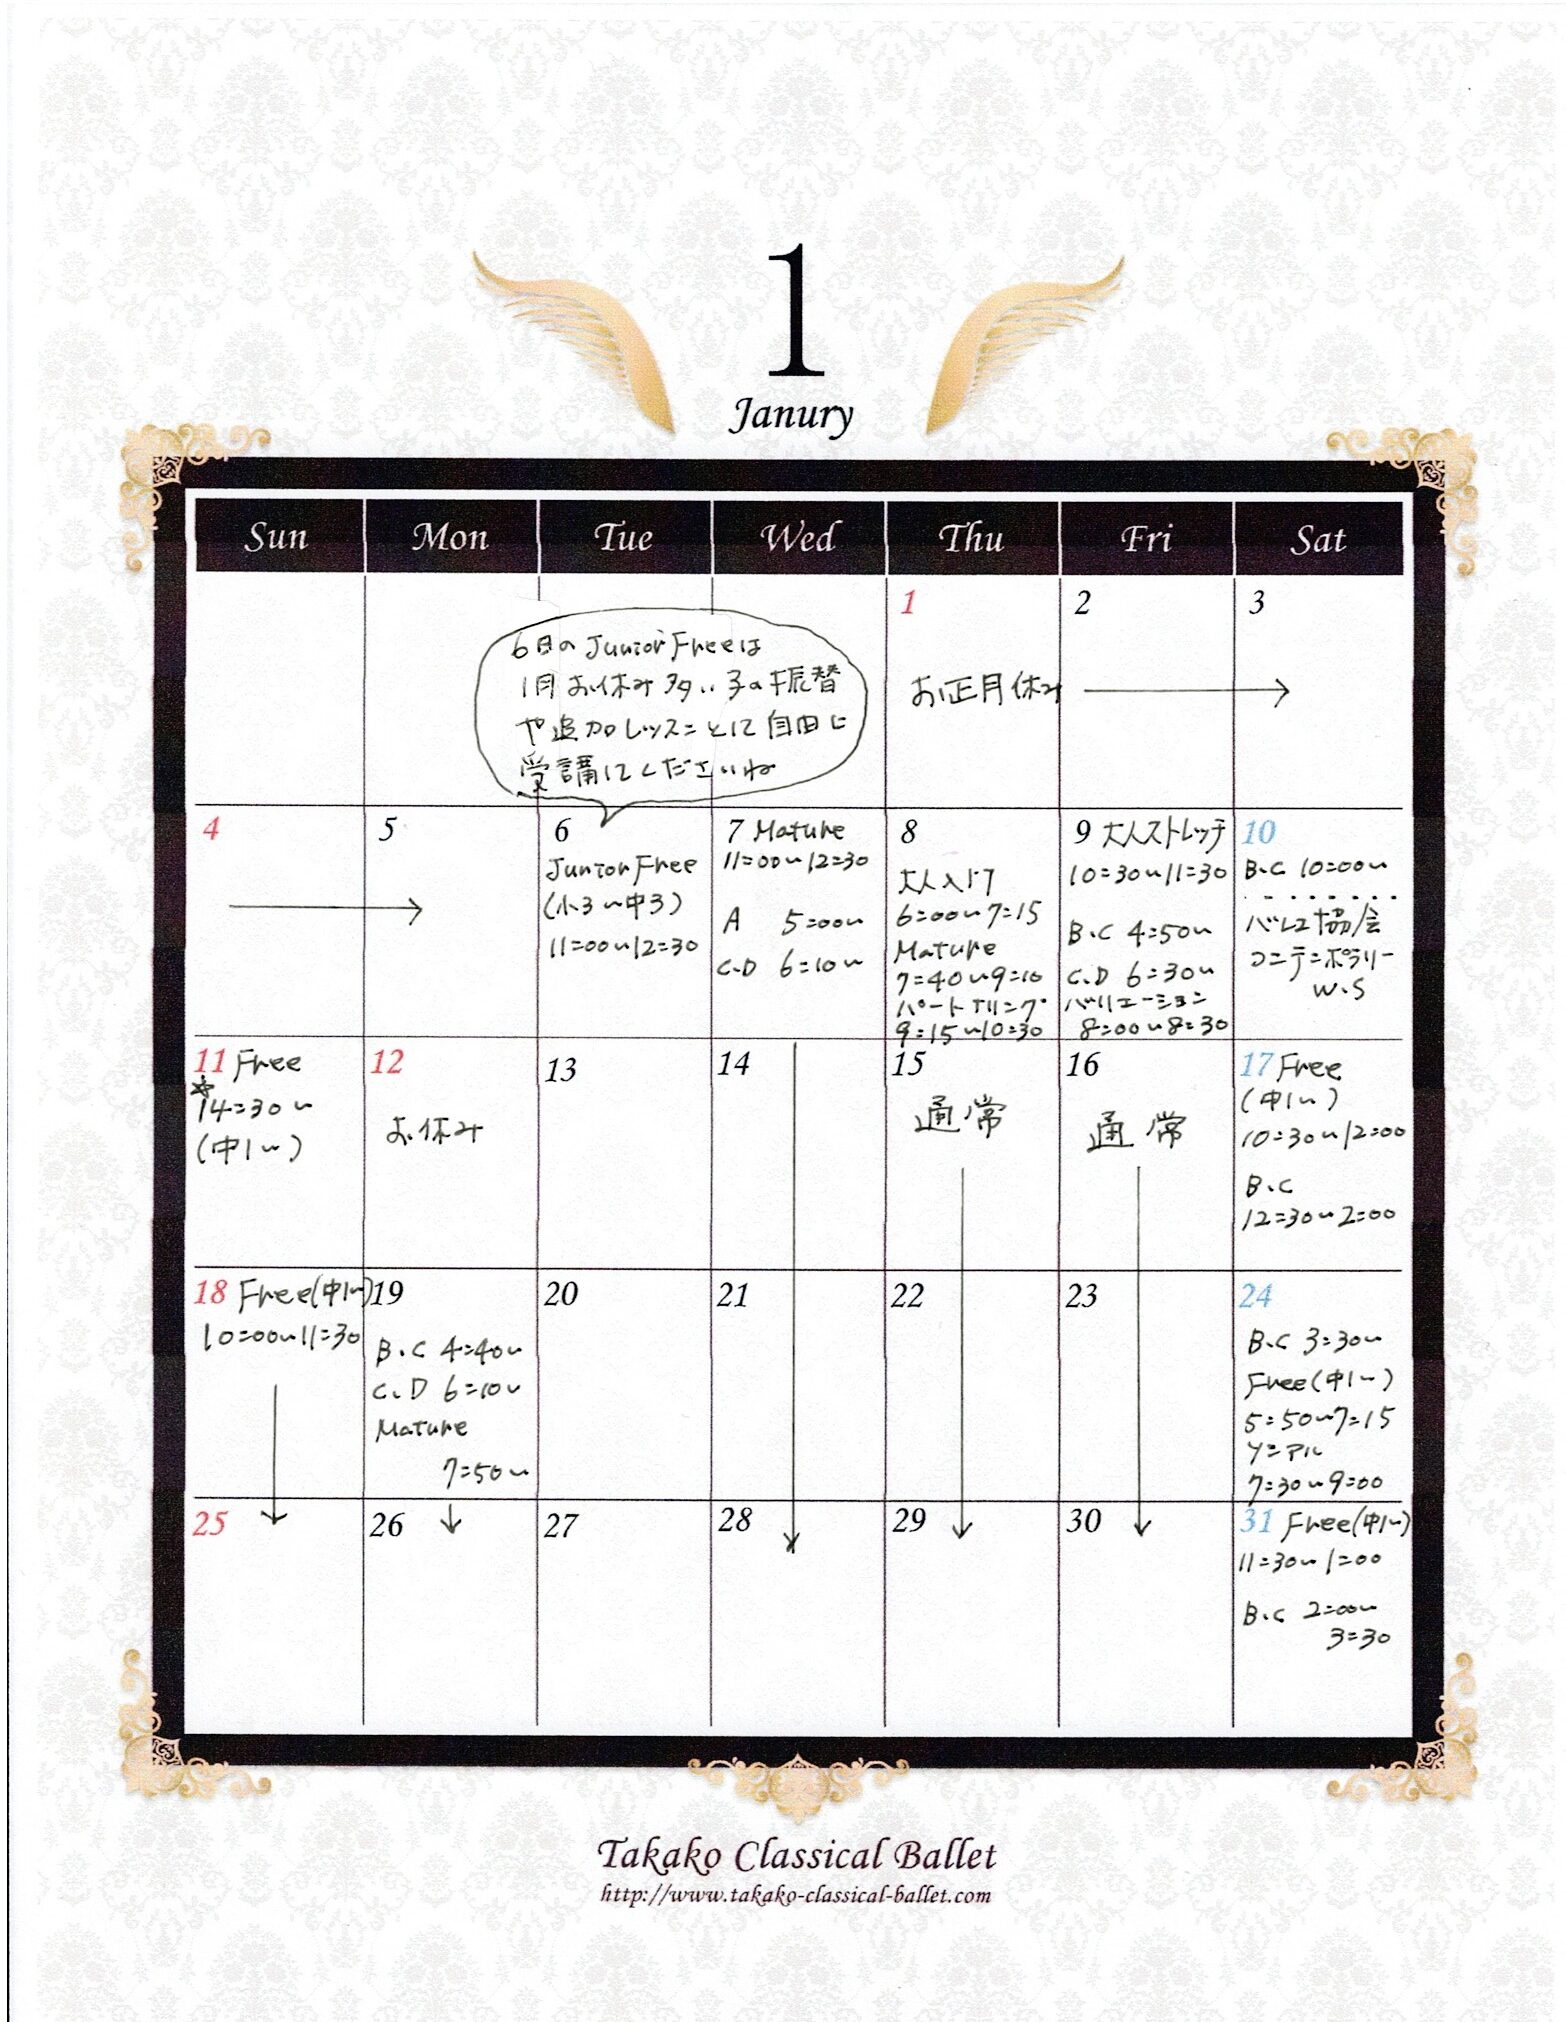 1
Janury
Sun Mon Tue Wed Thu Fri Sat
6日のJunior Freeは
1月お休み多い子の振替
や追加レッスンとして自由に
受講してくださいね
1
お正月休み
2
3
4
5
6
Junior Free
(小3〜中3)
11:00〜12:30
7 Mature
11:00〜12:30
A 5:00〜
C.D 6:10〜
8
大人入門
6:00〜7:15
Mature
7:40〜9:10
パートナリング
9:15〜10:30
9 大人ストレッチ
10:30〜11:30
B.C 4:50〜
C.D 6:30〜
バリエーション
8:00〜8:30
10
B.C 10:00〜
バレエ協会
コンテンポラリー
W.S
11 Free
☆
14:30〜
(中1〜)
12
お休み
13
14
15
通常
16
通常
17 Free
(中1〜)
10:30〜12:00
B.C
12:30〜2:00
18 Free(中1〜)
10:00〜11:30
19
B.C 4:40〜
C.D 6:10〜
Mature
7:50〜
20
21
22
23
24
B.C 3:30〜
Free(中1〜)
5:50〜7:15
リニアル
7:30〜9:00
25
26
27
28
29
30
31 Free(中1〜)
11:30〜1:00
B.C 2:00〜
3:30
Takako Classical Ballet
http://www.takako-classical-ballet.com